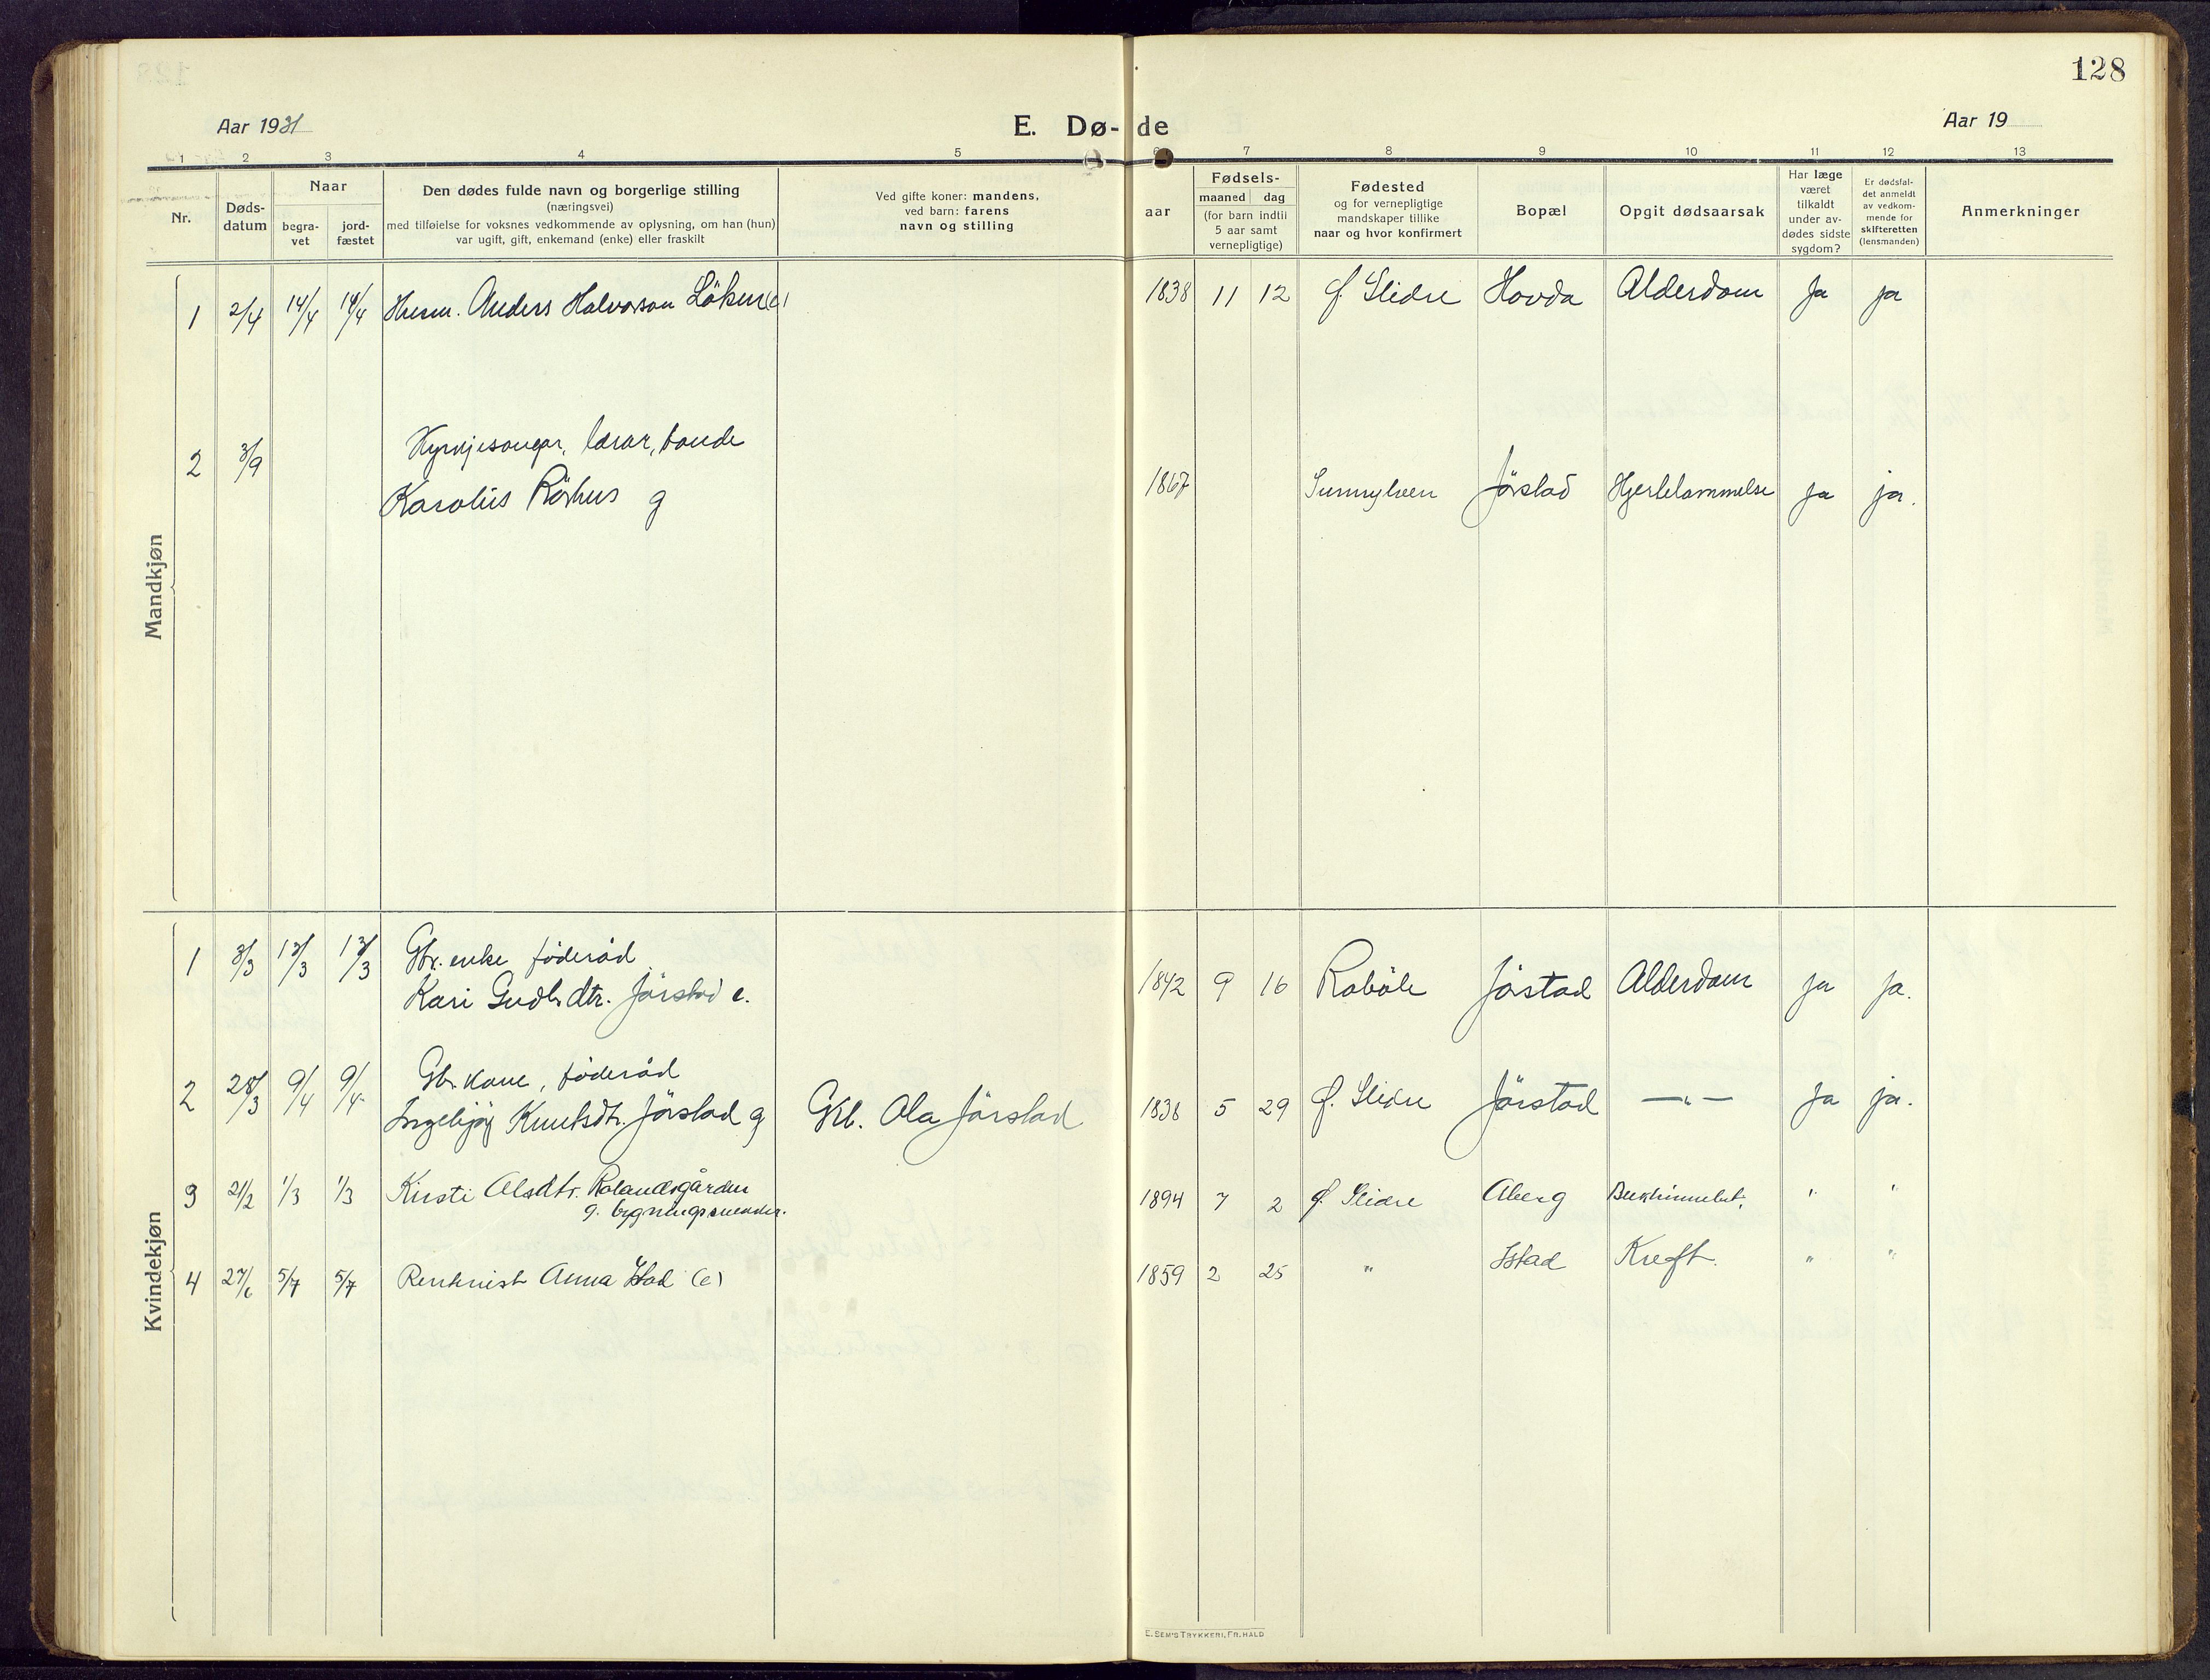 128
Aar 1931
E. Dø-de
Aar 19
1 2 3 4 5 6 7 8 9 10 11 12 13
Nr.
Døds-
datum
Naar
begra-
vet
jord-
fæstet
Den dødes fulde navn og borgerlige stilling
(næringsvei)
med tilføielse for voksnes vedkommende av oplysning, om han (hun)
var ugift, gift, enkemand (enke) eller fraskilt
Ved gifte koner: mandens,
ved barn: farens
navn og stilling
aar
Fødsels-
maaned dag
(for barn indtil
5 aar samt
vernepligtige)
Fødested
og for vernepligtige
mandskaper tillike
naar og hvor konfirmert
Bopæl
Opgit dødsaarsak
Har læge
været
tilkaldt
under av-
dødes sidste
sygdom?
Er dødsfal-
det anmeldt
av vedkom-
mende for
skifteretten
(lensmanden)
Anmerkninger
Mandkjøn
1 2/4 14/4 14/4 Husm. Anders Halvorson Löken (e) 1838 11 12 Ø. Slidre Hovda Alderdom Ja ja
Kyrkjesongar, lærar, bonde
2 3/9 Karolus Röyhus g 1867 Sunnylven Jörstad Hjertelammelse ja ja.
Kvindekjøn
Gbr. enke föderåd
1 3/3 13/3 13/3 Kari Gudb.dtr. Jörstad e. 1842 9 16 Robøle Jörstad Alderdom ja ja.
Gbr. kone, föderåd
2 28/3 9/4 9/4 Ingebjörg Knutsdtr. Jörstad g Gbr. Ola Jörstad 1838 5 29 Ø. Slidre Jörstad —"— Ja ja.
3 21/2 1/3 1/3 Kirsti Olsdtr. Rolandsgården 1894 7 2 Ø. Slidre Aberg " "
g. bygningssnekker.
4 27/6 5/7 5/7 Anna Istad (e) 1859 2 25 " Istad Kreft. " "
E. SEM'S TRYKKERI, FR.HALD